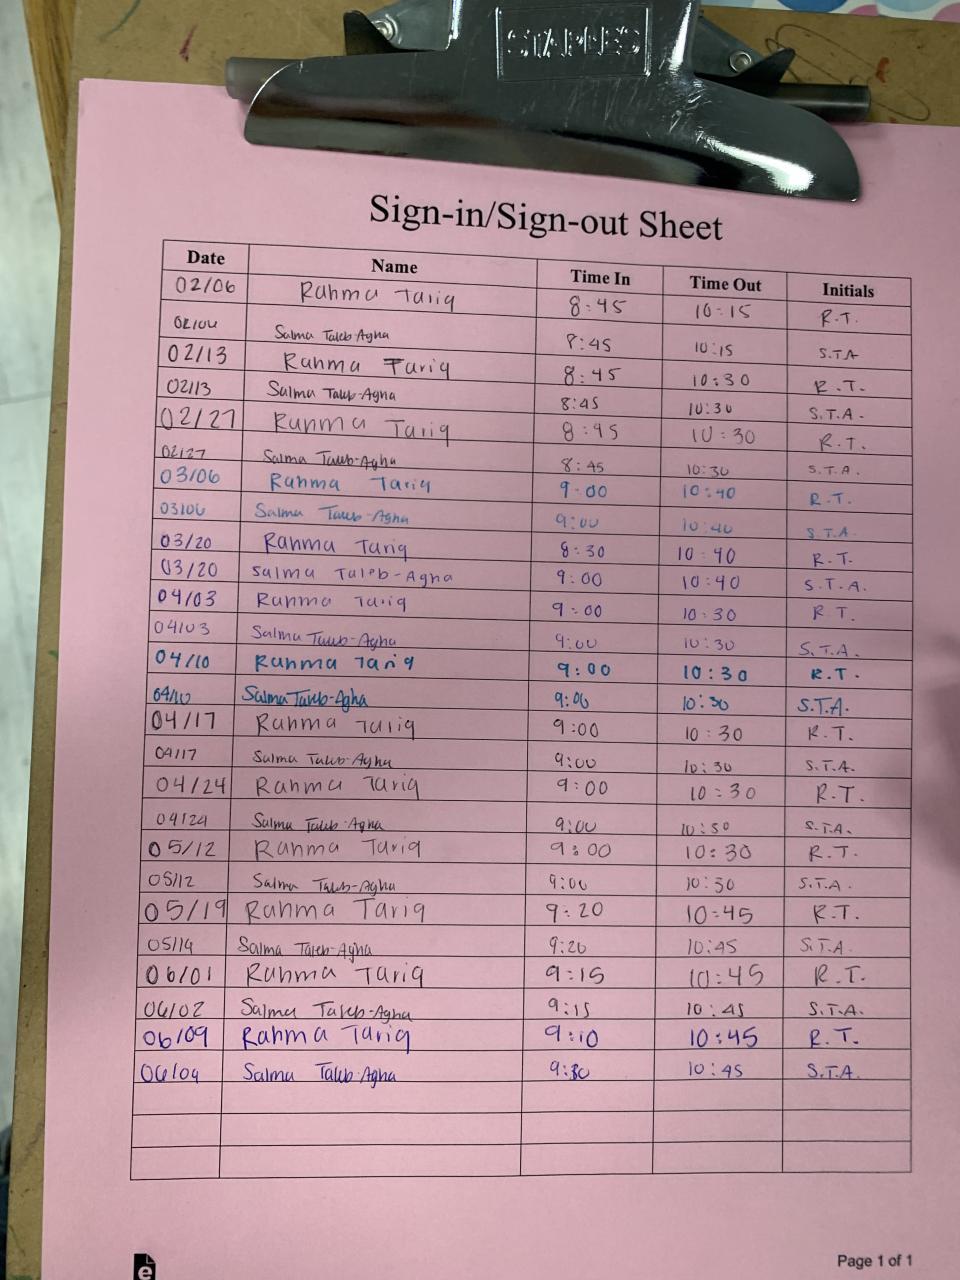 STAPLES
Sign-in/Sign-out Sheet
Date Name Time In Time Out Initials
02/06 Rahma Tariq 8:45 10:15 R.T.
02/06 Salma Taleb-Agha 8:45 10:15 S.T.A
02/13 Rahma Tariq 8:45 10:30 R.T.
02/13 Salma Taleb-Agha 8:45 10:30 S.T.A.
02/27 Rahma Tariq 8:45 10:30 R.T.
02/27 Salma Taleb-Agha 8:45 10:30 S.T.A.
03/06 Rahma Tariq 9:00 10:40 R.T.
03/06 Salma Taleb-Agha 9:00 10:40 S.T.A.
03/20 Rahma Tariq 8:30 10:40 R.T.
03/20 Salma Taleb-Agha 9:00 10:40 S.T.A.
04/03 Rahma Tariq 9:00 10:30 R.T.
04/03 Salma Taleb-Agha 9:00 10:30 S.T.A.
04/10 Rahma Tariq 9:00 10:30 R.T.
04/10 Salma Taleb-Agha 9:00 10:30 S.T.A.
04/17 Rahma Tariq 9:00 10:30 R.T.
04/17 Salma Taleb-Agha 9:00 10:30 S.T.A.
04/24 Rahma Tariq 9:00 10:30 R.T.
04/24 Salma Taleb-Agha 9:00 10:30 S.T.A.
05/12 Rahma Tariq 9:00 10:30 R.T.
05/12 Salma Taleb-Agha 9:00 10:30 S.T.A.
05/19 Rahma Tariq 9:20 10:45 R.T.
05/19 Salma Taleb-Agha 9:20 10:45 S.T.A.
06/01 Rahma Tariq 9:15 10:45 R.T.
06/02 Salma Taleb-Agha 9:15 10:45 S.T.A.
06/09 Rahma Tariq 9:10 10:45 R.T.
06/09 Salma Taleb-Agha 10:45 S.T.A.
e
Page 1 of 1